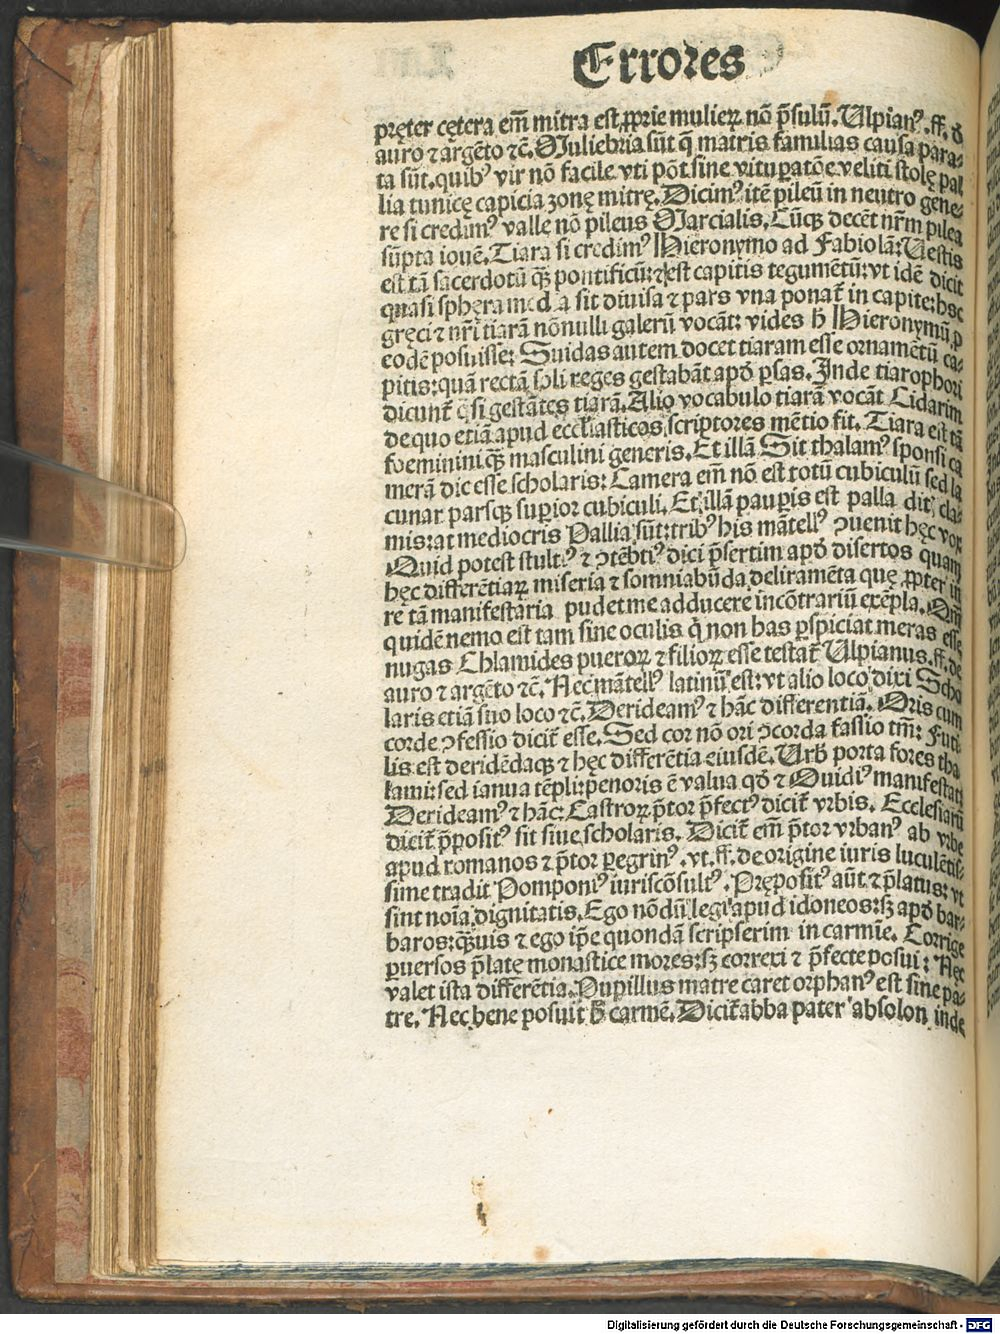 Errores
pręter cętera em̃ mitra est ꝓprie mulierꝝ nõ p̃sulũ. Ulpianꝰ. ff. ð
auro ⁊ argẽto ⁊c̃. Muliebria sũt q̃ matris familias causa para-
ta sũt. quibꝰ vir nõ facile vti põt sine vituꝑatõe veluti stolę pal
lia tunicę capicia zonę mitrę. Dicimꝰ itẽ pileũ in neutro gene-
re si credimꝰ valle nõ pileus Marcialis. Cũqꝫ decẽt nr̃m pilea
sũpta iouẽ. Tiara si credimꝰ Hieronymo ad Fabiolã: Uestis
est tã sacerdotũ qꝫ̃ pontificũ: ⁊ est capitis tegumẽtũ: vt idẽ dicit
quasi sphęra med a sit diuisa ⁊ pars vna ponat̃ in capite: hsc
gręci ⁊ nr̃i tiarã nõnulli galerũ vocãt: vides h̃ Hieronymũ ꝓ
eodẽ posuisse: Suidas autem docet tiaram esse ornamẽtũ ca-
pitis: quã rectã soli reges gestabãt apð ꝑsas. Inde tiarophori
dicunt̃ q̃si gestãtes tiarã. Alio vocabulo tiarã vocãt Cidarim
de quo etiã apud ecclesiasticos scriptores mẽtio fit. Tiara est tã
foeminini qꝫ̃ masculini generis. Et illã Sit thalamꝰ sponsi ca
merã dic esse scholaris: Camera em̃ nõ est totũ cubiculũ sed la
cunar parsqꝫ suꝑior cubiculi. Et illã pauꝑis est palla dit; cla-
mis: at mediocris Pallia sũt: tribꝰ his mãtellꝰ ↄuenit hęc vox
Quid potest stultiꝰ ⁊ ↄtẽbtiꝰ dici p̃sertim apð disertos quam
hęc differẽtiaꝝ miseria ⁊ somniabũda deliramẽta quę ꝓpter in
re tã manifestaria pudet me adducere in cõtrariũ exẽpla. Qm̃
quidẽ nemo est tam sine oculis q̃ non has ꝑspiciat meras esse
nugas Chlamides pueroꝝ ⁊ filioꝝ esse testat̃ Ulpianus. ff. de
auro ⁊ argẽto ⁊c̃. Nec mãtellꝰ latinũ est: vt alio loco dixi Scho
laris etiã suo loco ⁊c̃. Derideamꝰ ⁊ hãc differentiã. Oris cum
corde ↄfessio dicit̃ esse. Sed cor nõ ori ↄcorda fassio tm̃: Futi
lis est deridẽdaqꝫ ⁊ hęc differẽtia eiusdẽ. Urb̃ porta fores tha
lami: sed ianua tẽpli: penoris ẽ valua qð ⁊ Ouidiꝰ manifestat:
Derideamꝰ ⁊ hãc: Castroꝝ p̃tor p̃fectꝰ dicit̃ vrbis. Ecclesiarũ
dicit̃ p̃positꝰ sit siue scholaris. Dicit̃ em̃ p̃tor vrbanꝰ ab vrbe
apud romanos ⁊ p̃tor ꝑegrinꝰ. vt. ff. de origine iuris luculẽtis-
sime tradit Pomponiꝰ iuriscõsultꝰ. Prępositꝰ aũt ⁊ p̃latus: vt
sint noĩa dignitatis. Ego nõdũ legi apud idoneos: sꝫ apð bar-
baros: qꝫ̃uis ⁊ ego ip̃e quondã scripserim in carmĩe. Corrige
ꝑuersos p̃latę monastice mores: sꝫ correxi ⁊ p̃fecte posui: Nec
valet ista differẽtia. Pupillus matre caret orphanꝰ est sine pa-
tre. Nec bene posuit h̃ carmẽ. Dicit̃ abba pater absolon inde
Digitalisierung gefördert durch die Deutsche Forschungsgemeinschaft - DFG